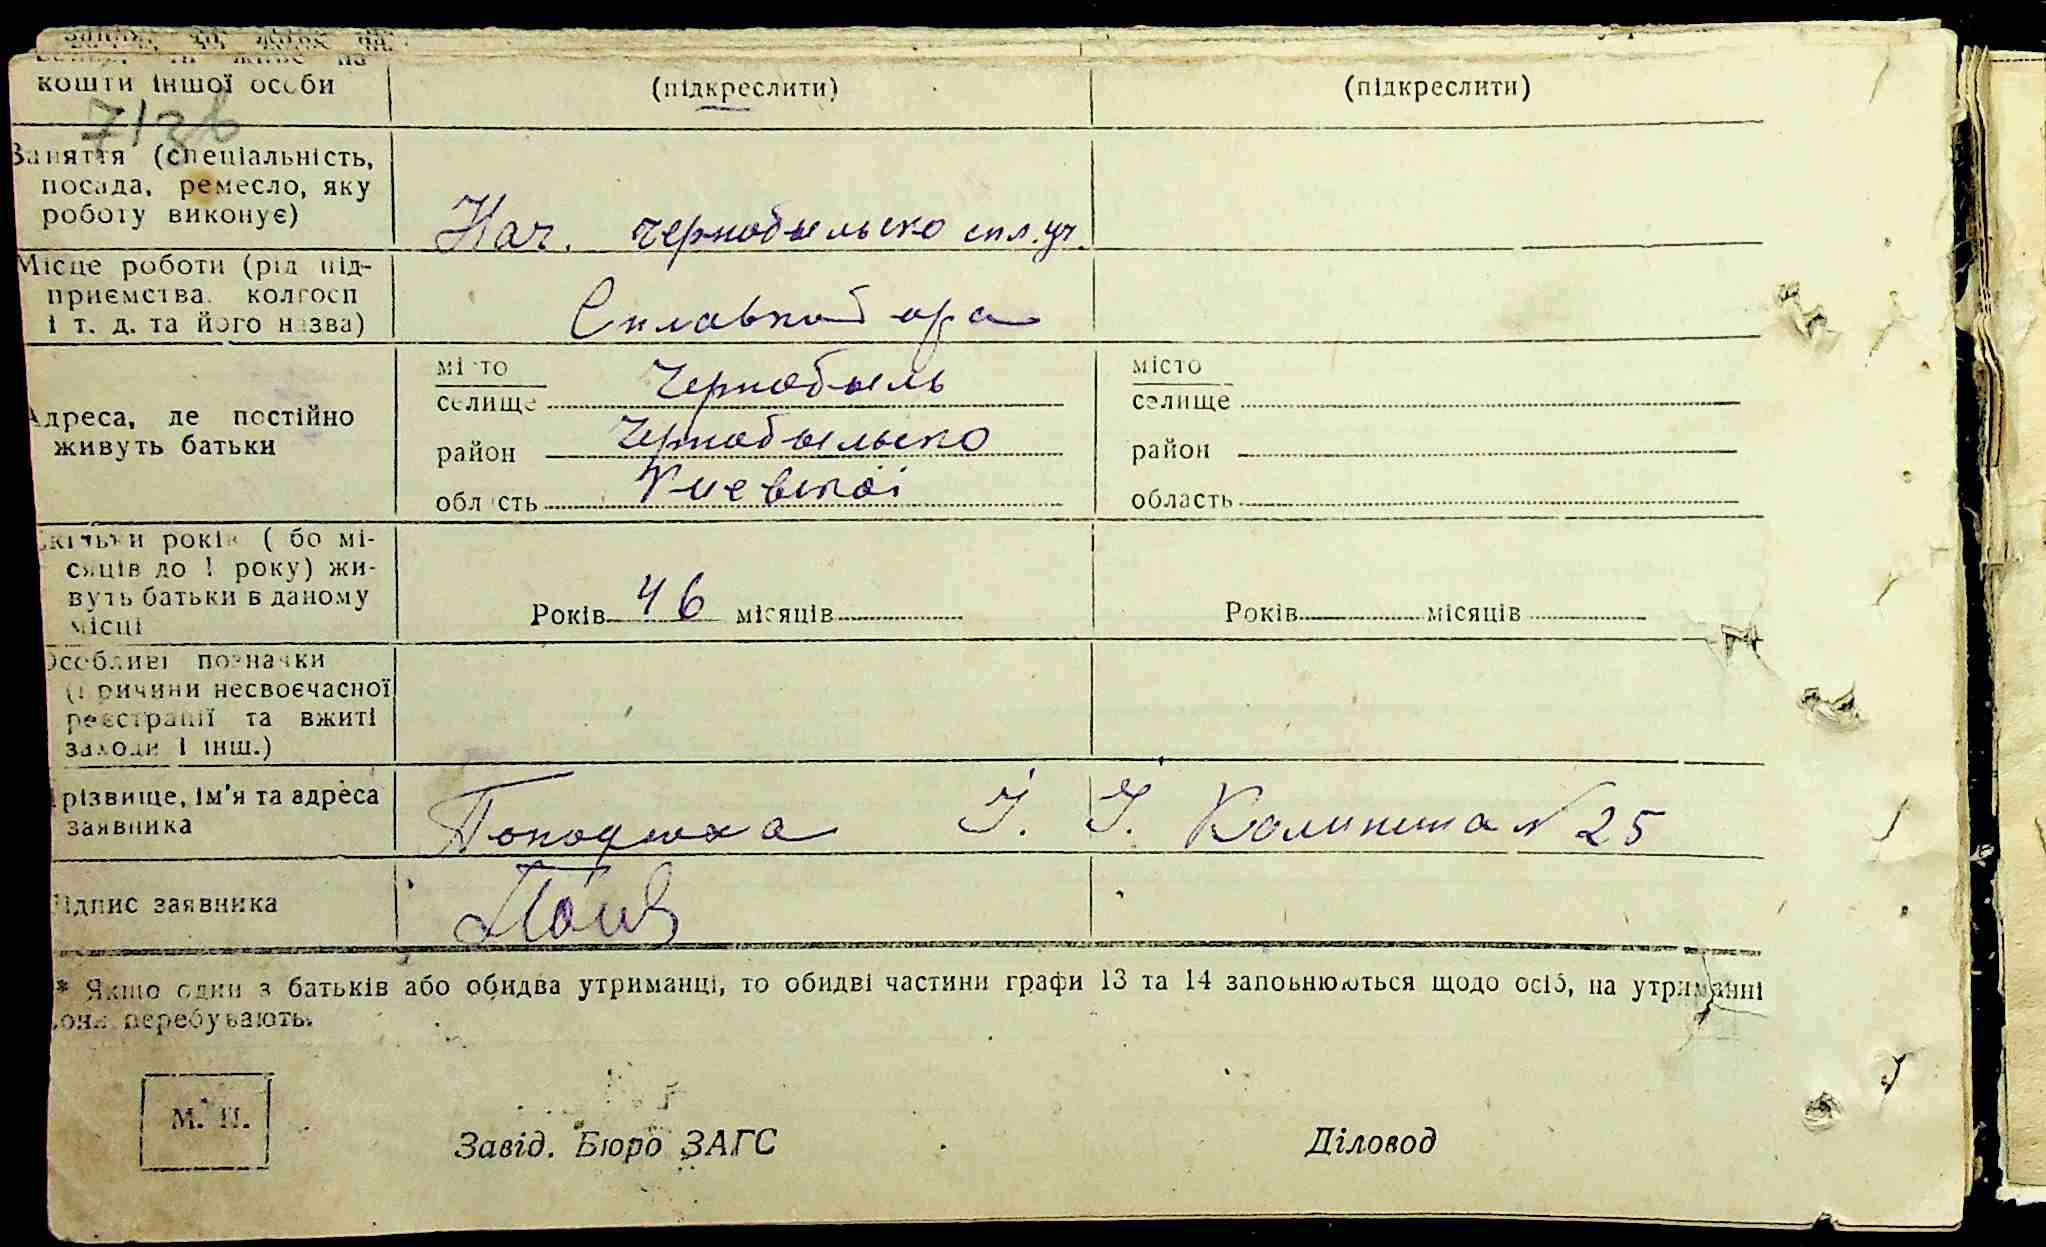 кошти іншої особи
(підкреслити)
(підкреслити)
Заняття (спеціальність,
посада, ремесло, яку
роботу виконує)
Нач. Чернобыльско спл.уч.
Місце роботи (рід під-
приємства, колгосп
і т. д. та його назва)
Адреса, де постійно
живуть батьки
місто Чернобыль
селище
район Чернобыльско
область Киевської
місто
селище
район
область
Скільки років ( бо мі-
сяців до 1 року) жи-
вуть батьки в даному
місці
Років 46 місяців
Років місяців
Особливі позначки
(причини несвоєчасної
реєстрації та вжиті
заходи і інш.)
Прізвище, ім'я та адреса
заявника
І. І. Калинина № 25
Підпис заявника
* Якщо один з батьків або обидва утриманці, то обидві частини графи 13 та 14 заповнюються щодо осіб, на утриманні
вони перебувають.
М. П.
Завід. Бюро ЗАГС
Діловод